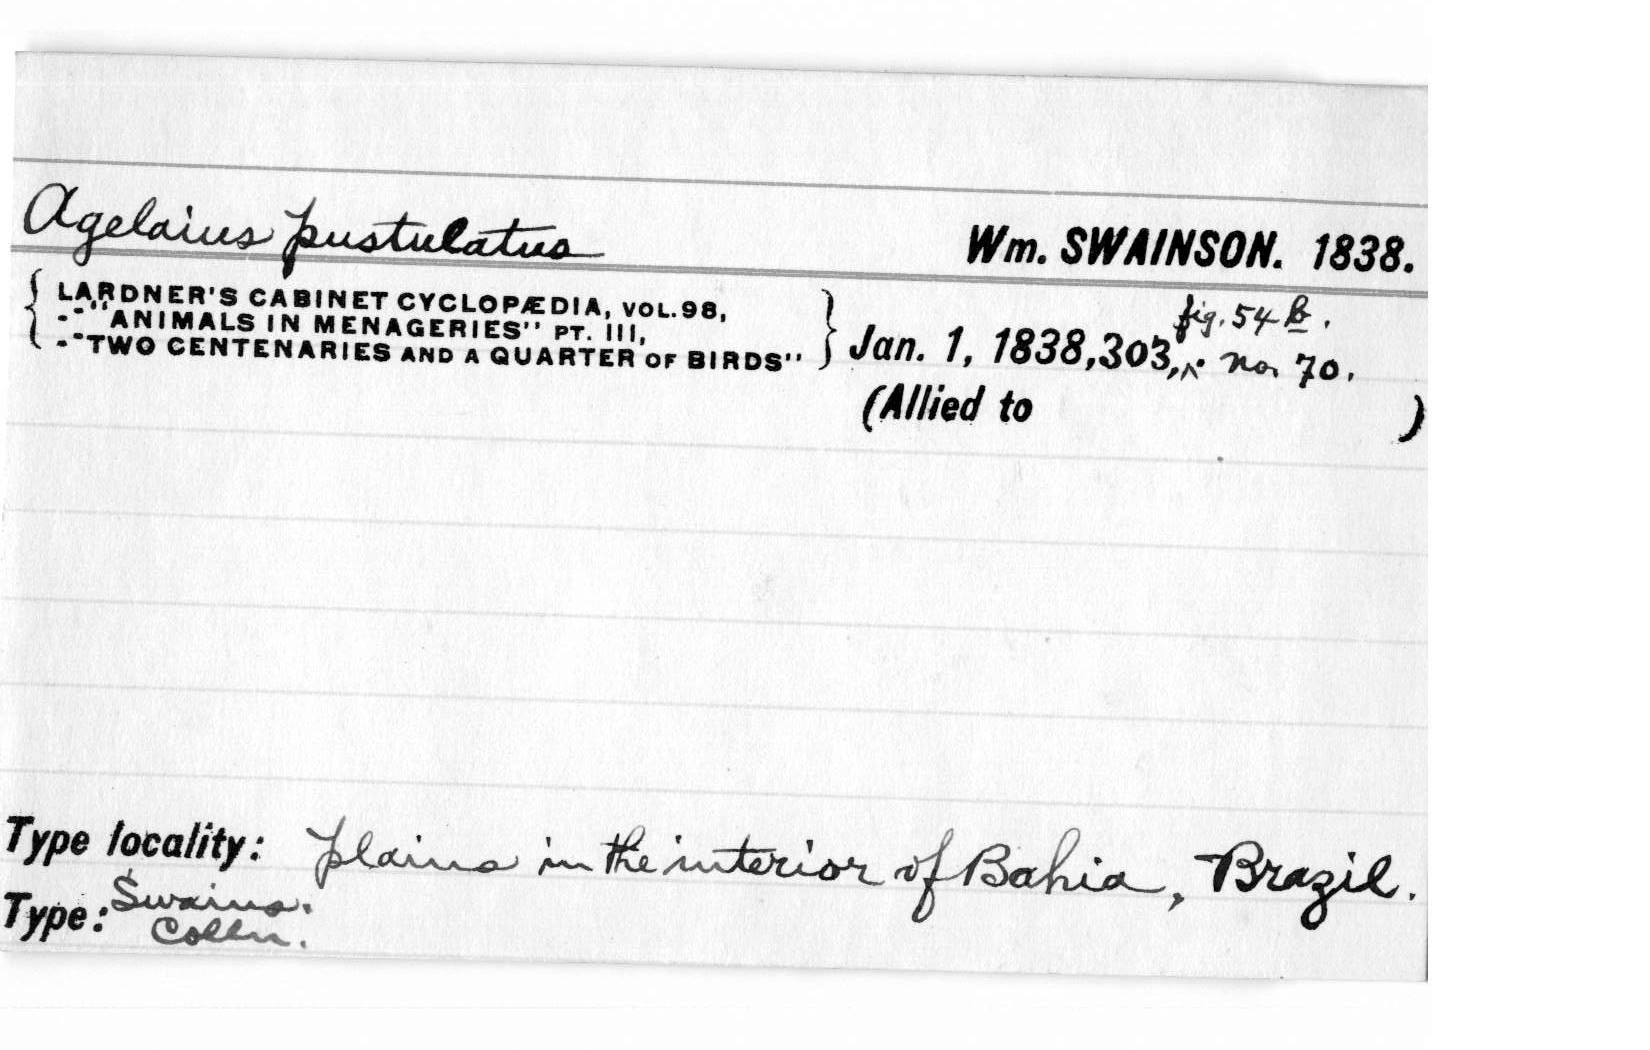 Agelaius pustulatus Wm. SWAINSON. 1838.
LARDNER'S CABINET CYCLOPÆDIA, VOL. 98,
--"ANIMALS IN MENAGERIES" PT. III,
--"TWO CENTENARIES AND A QUARTER OF BIRDS"
fig. 54 b.
Jan. 1, 1838, 303, ^. no. 70.
(Allied to )
Type locality: plains in the interior of Bahia, Brazil.
Type: Swains.
Colln.